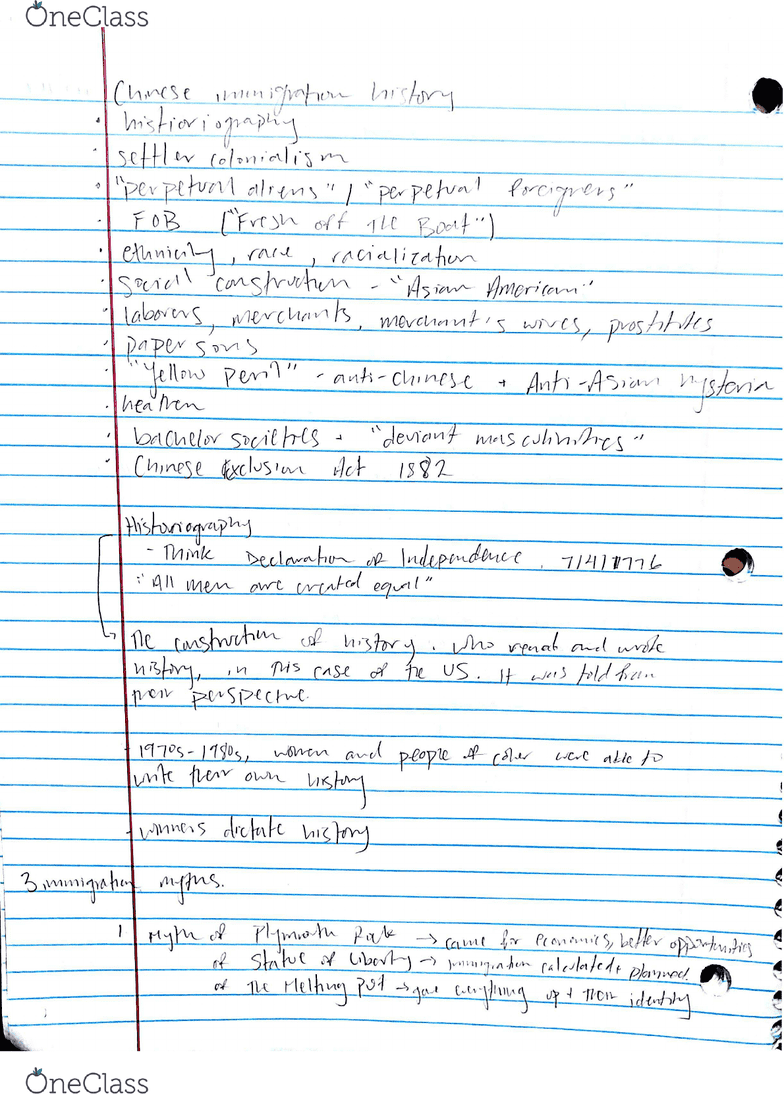 OneClass
Chinese immigration history
• histioriography
• settler colonialism
• "perpetual aliens" / "perpetual foreigners"
• FOB ("Fresh off the Boat")
• ethnicity, race, racialization
• social construction - "Asian American"
• laborers, merchants, merchant's wives, prostitutes
• paper sons
• "Yellow Peril" - anti-chinese + Anti-Asian hysteria
• heathen
• bachelor societies + "deviant masculinities"
• Chinese Exclusion Act 1882
Historiography
- Think Declaration of Independence. 7/4/1776
"All men are created equal"
The construction of history. Who and wrote
history, in this case of the US. It was told from
their perspective.
- 1970s-1980s, women and people of color were able to
write their own history
- winners dictate history
3 immigration myths.
1 Myth of Plymouth Rock → came for economics, better opportunities
of Statue of Liberty → immigration calculated + planned
of the Melting Pot → gave everything up + their identity
OneClass